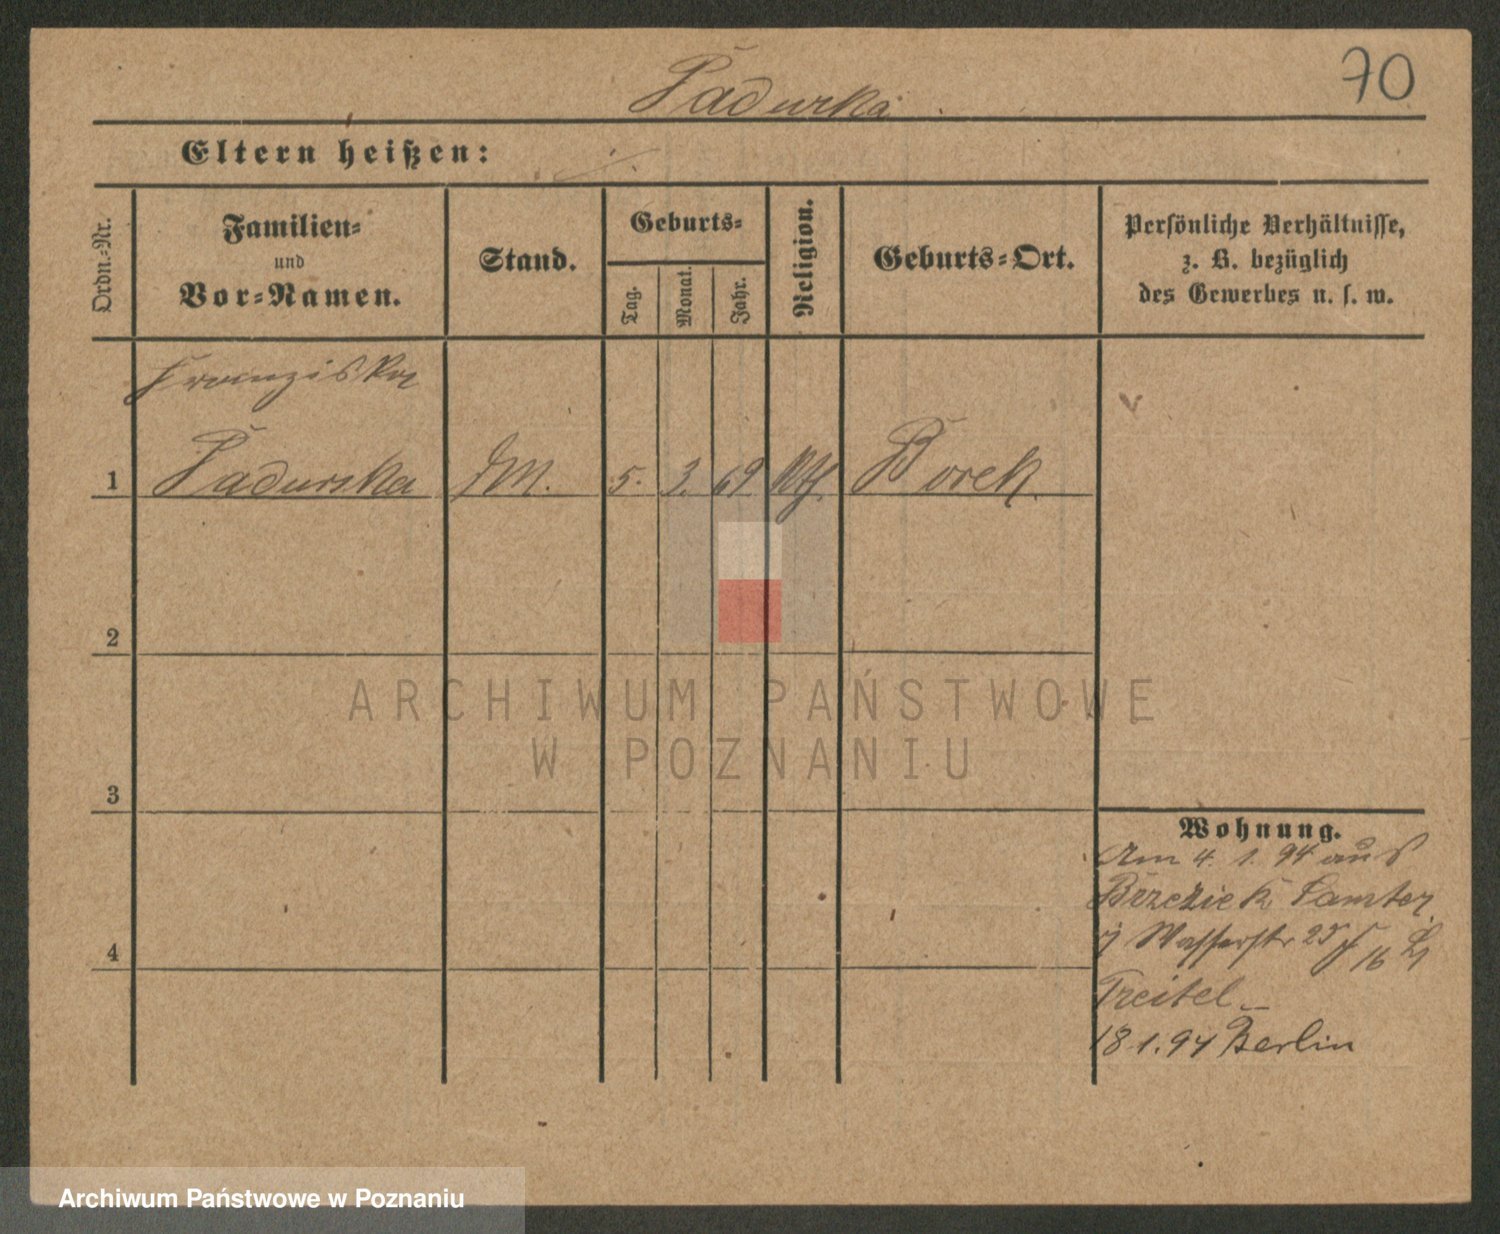 70
Padurka
Eltern heißen:
Ordn.-Nr.
Familien-
und
Vor-Namen.
Stand.
Geburts-
Tag.
Monat.
Jahr.
Religion.
Geburts-Ort.
Persönliche Verhältnisse,
z. B. bezüglich
des Gewerbes u. s. w.
Franziska
1 Padurska M. 5. 3. 69 Kth. Borek.
2
3
4
Wohnung.
Am 4. 1. 94 aus
Samter
Wasserstr 25 16
Treitel
18.1.94 Berlin
ARCHIWUM PAŃSTWOWE
W POZNANIU
Archiwum Państwowe w Poznaniu